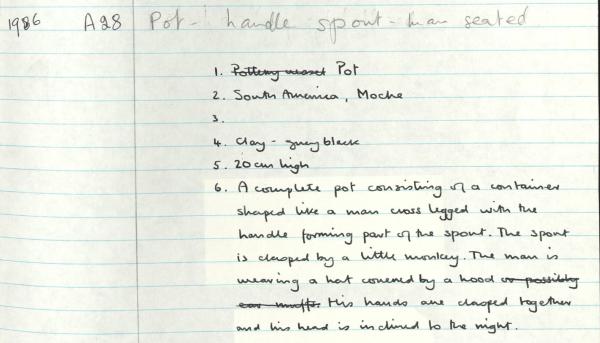 1986 A28 Pot - handle spout - man seated
1. Pottery vessel Pot
2. South America, Moche
3.
4. Clay - grey black
5. 20cm high
6. A complete pot consisting of a container
shaped like a man cross legged with the
handle forming part of the spout. The spout
is clasped by a little monkey. The man is
wearing a hat covered by a hood or possibly
ear muffs. His hands are clasped together
and his head is inclined to the right.